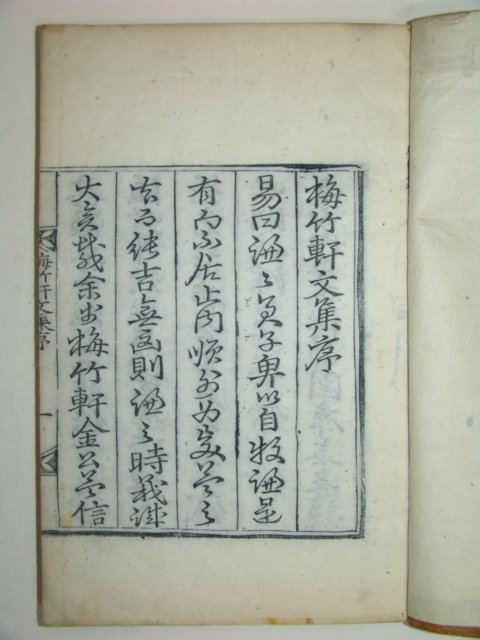 梅竹軒文集序
易曰謙〻君子卑以自牧謙是
有而不居止内順外
吉無凶則謙之時義誠
大矣哉余於梅竹軒金公益信
梅竹軒文集序 一